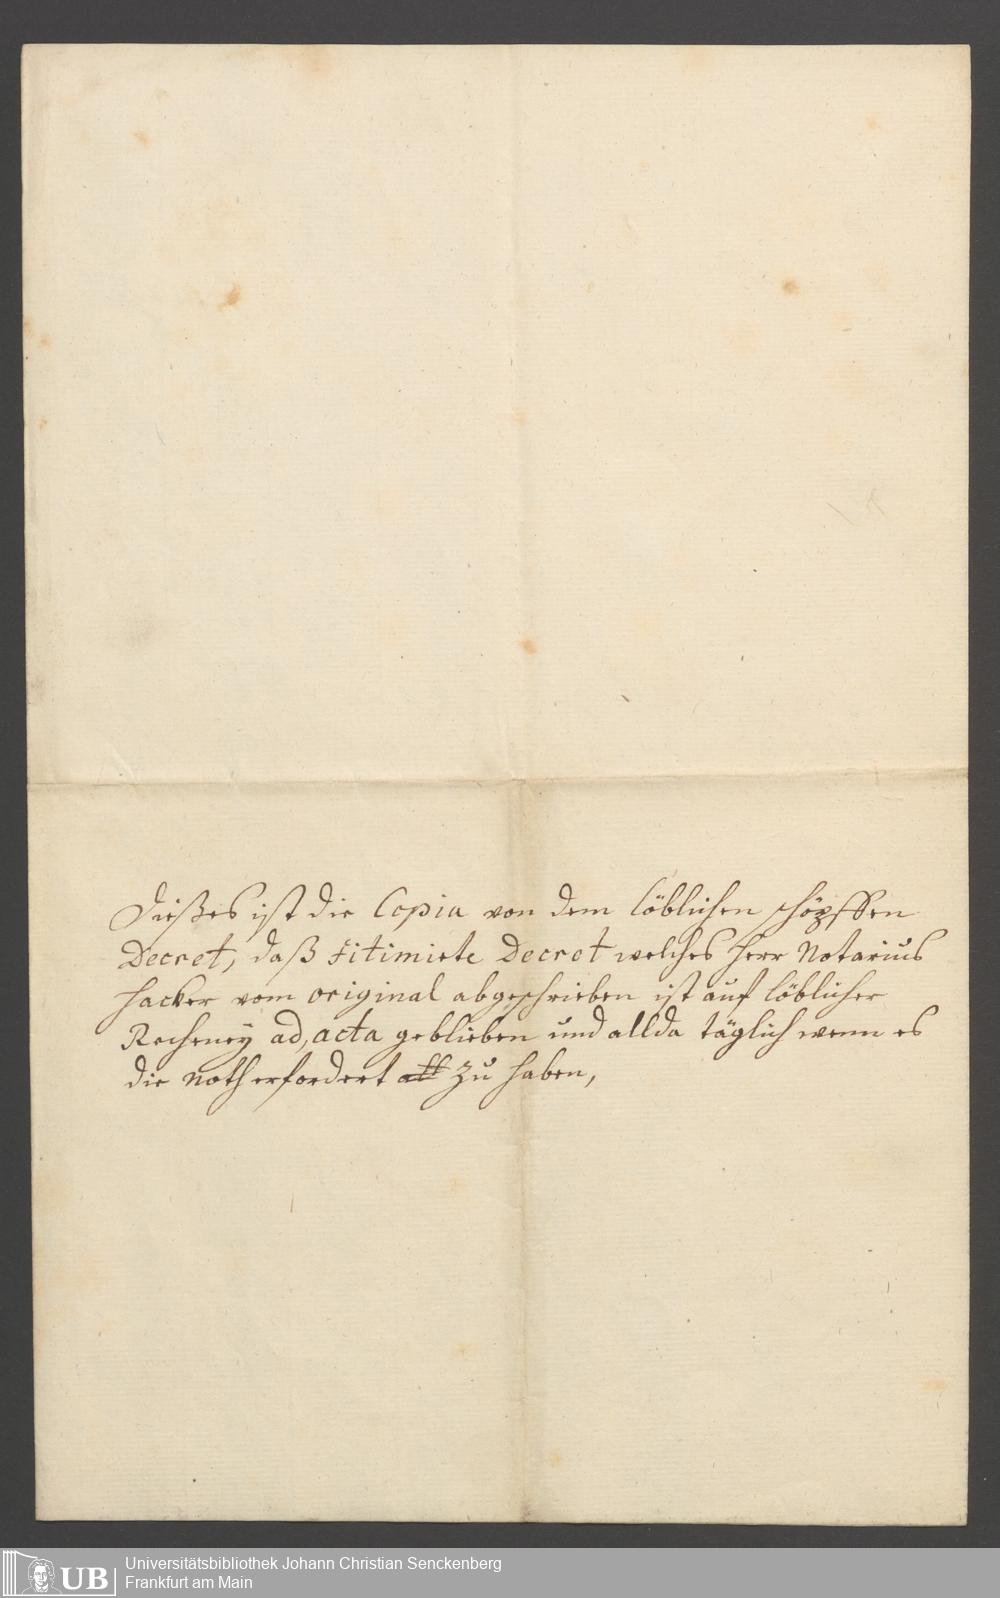 Dießes ist die Copia von dem löblichen schöpffen
Decret, daß fitimirte Decret welches herr Notarius
hacker vom original abgeschrieben ist auf löblicher
Recheney ad, acta geblieben und allda täglich wenn es
die noth erfordert zu haben,
UB
Universitätsbibliothek Johann Christian Senckenberg
Frankfurt am Main